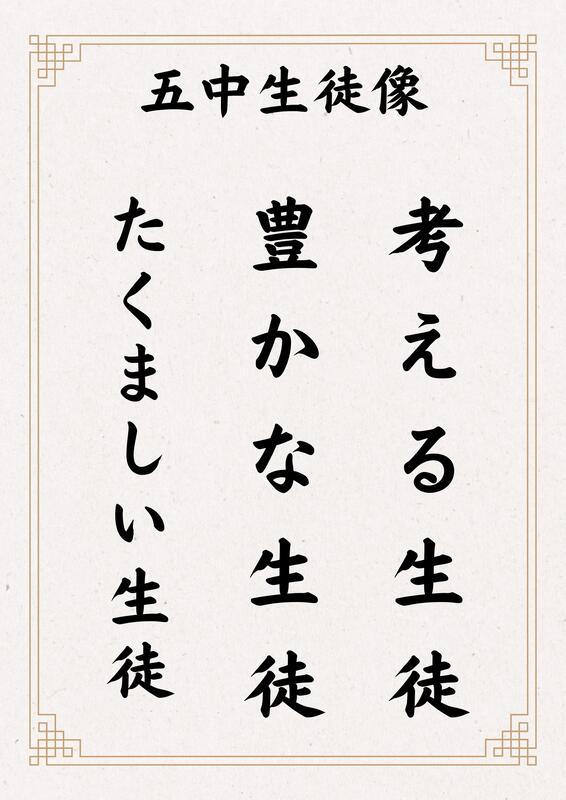 五中生徒像
考える生徒
豊かな生徒
たくましい生徒